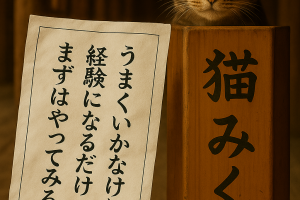 うまくいかなけ
経験になるだけ
まずはやってみる
猫みく